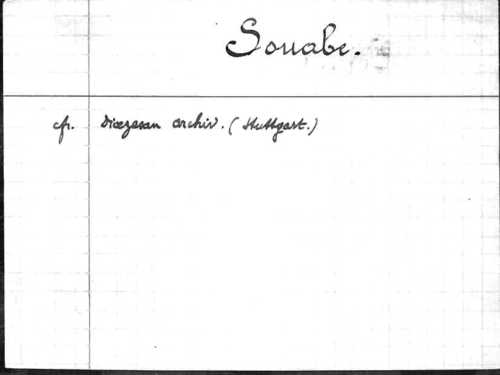 Souabe.
cfr. Diœzesan archiv. (Stuttgart.)